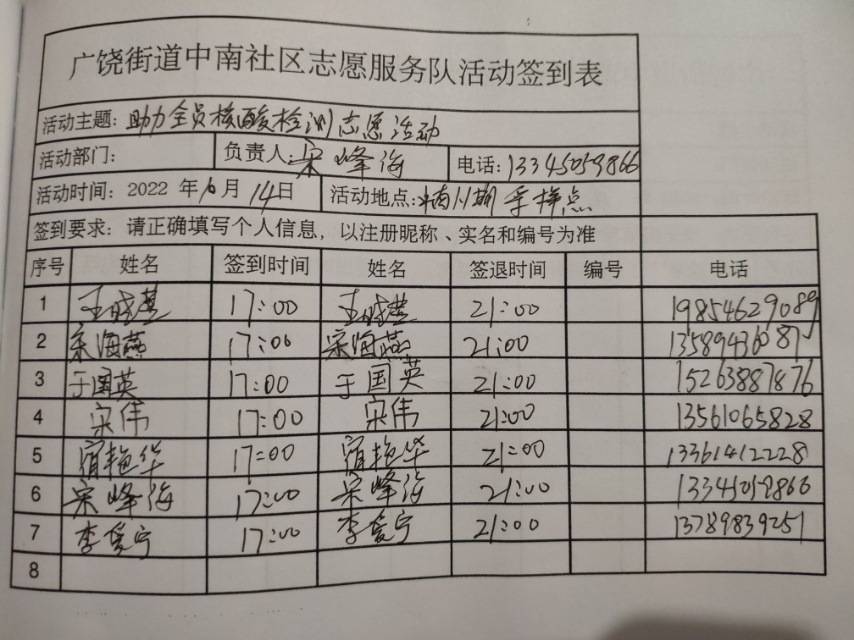 广饶街道中南社区志愿服务队活动签到表
活动主题: 助力全员核酸检测志愿活动
活动部门: 负责人: 宋峰海 电话: 13345059866
活动时间: 2022 年 10 月 14 日 活动地点: 采样点
签到要求: 请正确填写个人信息, 以注册昵称、实名和编号为准
序号 姓名 签到时间 姓名 签退时间 编号 电话
1 王晓慧 17:00 王晓慧 21:00 19854629089
2 宋海燕 17:00 宋海燕 21:00 13589436087
3 于国英 17:00 于国英 21:00 15263887876
4 宋伟 17:00 宋伟 21:00 13561065828
5 宿艳华 17:00 宿艳华 21:00 13361412228
6 宋峰海 17:00 宋峰海 21:00 13345059866
7 李爱宁 17:00 李爱宁 21:00 13789839251
8